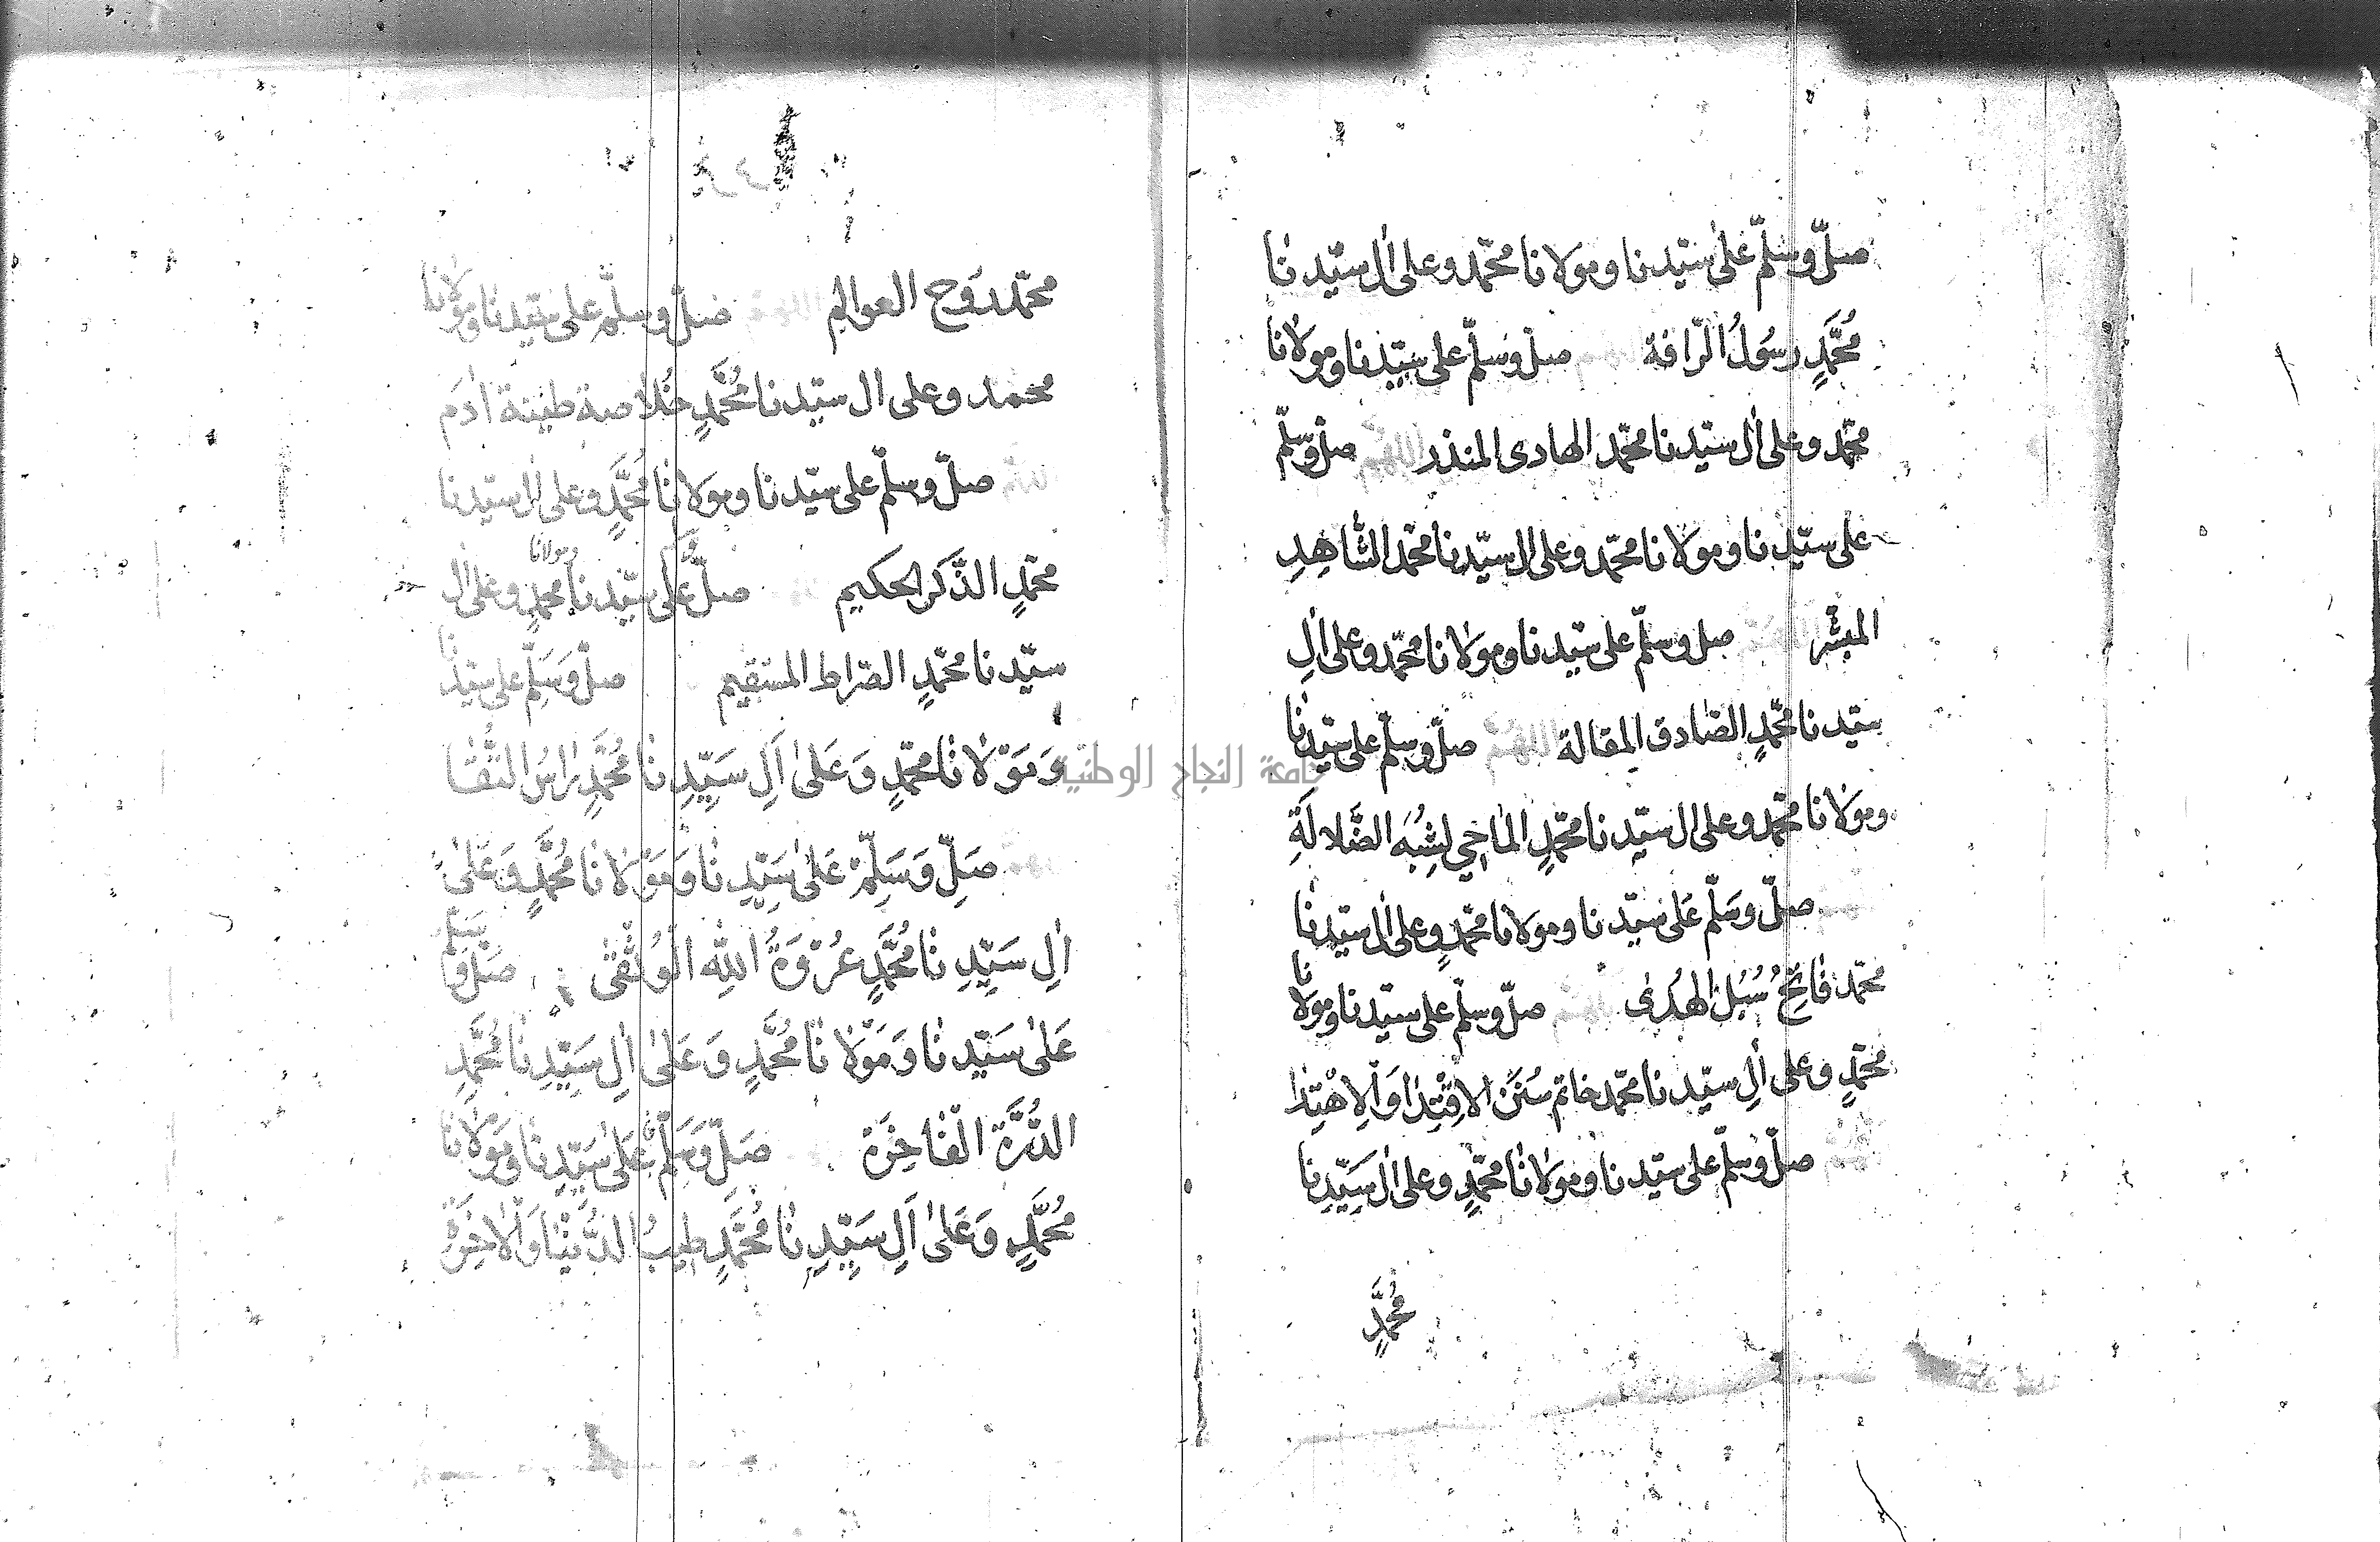 صلّ وسلّم على سيّدنا ومولانا محمّد وعلى اٰل سيّدنا
مُحَمَّدٍ رسُولُ الرّافة صلّ وسلّم على سيّدنا ومولانا
محمّد وعلى اٰل سيّدنا محمّد الهادى المنذر اللهمّ صلّ وسلّم
على سيّدنا ومولانا محمّد وعلى اٰل سيّدنا محمّد الشّاهِدِ
المبشّر اللهمّ صل وسلّم على سيّدنا ومولانا محمّد وعلى اٰلِ
سيّدنا محمّدٍ الصّادق المقالة اللهمّ صلّ وسلّم على سيّدنا
ومولانا محمّد وعلى ال سيّدنا محمّدٍ الماحِي لشِبُه الضّلالَةِ
صلّ وسَلّم عَلى سيّدنا ومولانا محمّدٍ وعلى اٰل سيّدنا
محمّد فَاتِحُ سُبُل الهُدٰى اللهمّ صلّ وسلّم على سيّدنا ومولانا
محمّدٍ وعلى اٰلِ سيّدنا محمّد خاتم سُنَنَ الاقْتِدَا وَالاِهْتِدَا
اللهمّ صلّ وسلّم على سيّدنا ومولانا محمّدٍ وعلى اٰل سَيّدِنا
مُحَمَّدٍ
محمّد رَوح العوالم صلّ وسلّم على سيّدنا ومولانا
محمد وعلى ال سيّدنا مُحَمَّدٍ خُلاصة طينة اٰدَم
صلّ وسلّم على سيّدنا ومولانا مُحَمَّدٍ وعلى اٰل سيّدنا
محمّدٍ الذّكر الحكيم صلّ على سيّدنا ومولانا محمدٍ وعلى اٰل
سيّدنا محمّدٍ الصّراط المستقيم صلّ وَسَلّم على سيّدنا
وَمَوْلانَا محمّدٍ وَعَلىٰ اٰلِ سَيِّدِنَا مُحَمَّدٍ رَاسُ التُّقَا
جامعة النجاح الوطنية
صَلِّ وَسَلِّمْ عَلىٰ سَيِّدِنَا وَمَوْلانَا مُحَمَّدٍ وَعَلىٰ
اٰلِ سَيِّدِنَا مُحَمَّدٍ عُرْوَةُ اللهِ الْوُثْقٰى صَلّ وَسَلّم
عَلىٰ سَيّدِنَا وَمَوْلانَا مُحَمَّدٍ وَعَلىٰ اٰلِ سَيِّدِنَا مُحَمَّدٍ
الدُّرَّةِ الْفَاخِرَة صَلّ وَسَلّم عَلىٰ سَيّدِنَا وَمَوْلانَا
مُحَمَّدٍ وَعَلىٰ اٰلِ سَيِّدِنَا مُحَمَّدٍ طِيبُ الدُّنْيَا وَالْاٰخِرَة